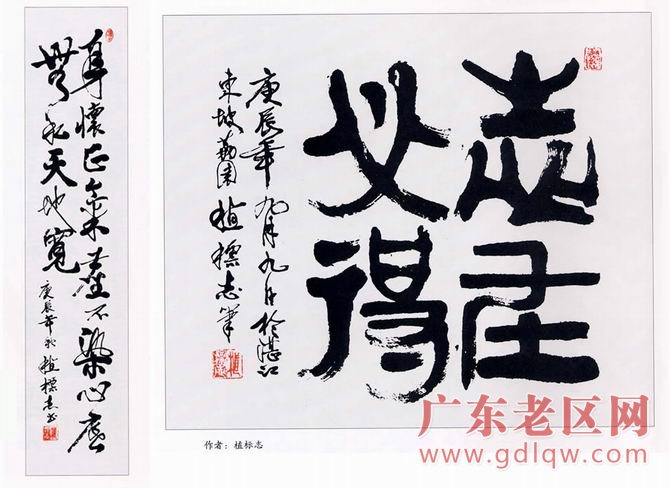 身懷正氣塵不染心底
無私天地寬
庚辰年秋植標志書
志在
必得
庚辰年九月九日於湛江
東坡荔園植標志筆
作者：植标志
广东老区网
www.gdlqw.com